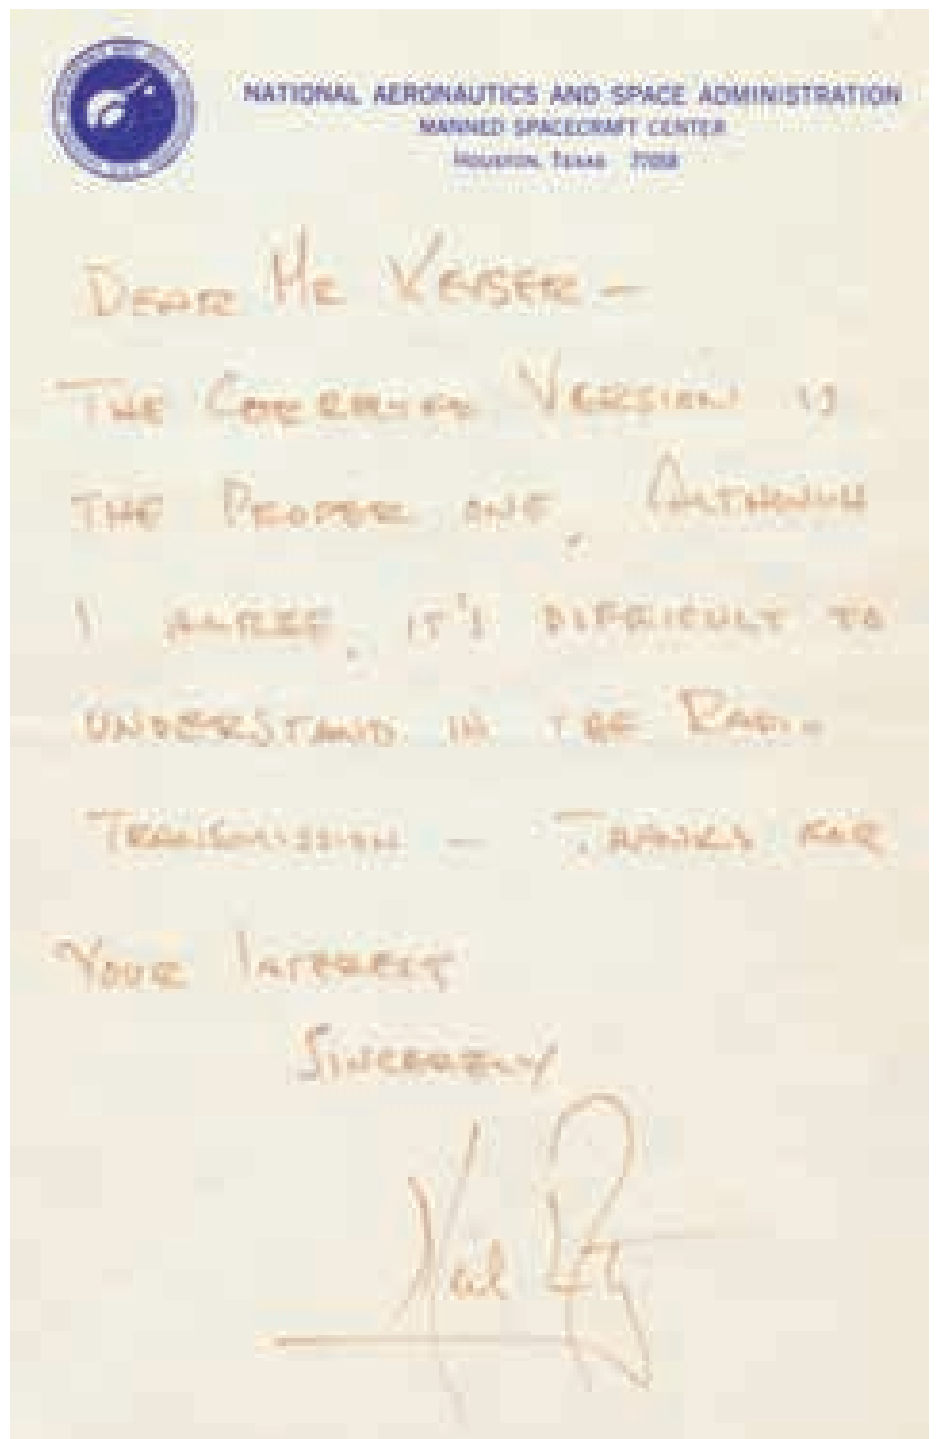 NATIONAL AERONAUTICS AND SPACE ADMINISTRATION
MANNED SPACECRAFT CENTER
HOUSTON, TEXAS 77058
DEAR MR KEISER –
THE CORRECTED VERSION IS
THE PROPER ONE, ALTHOUGH
I AGREE, IT'S DIFFICULT TO
UNDERSTAND IN THE RADIO
TRANSMISSION – THANKS FOR
YOUR INTEREST
SINCERELY